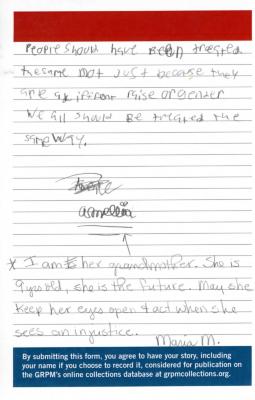 People should have been treated
the same not just because they
are a different raise or gender
we all should be treated the
same way.
acmelliia
* I am her grandmother. She is
9 yrs old, she is the future. May she
keep her eyes open & act when she
sees an injustice.
Maria M.
By submitting this form, you agree to have your story, including
your name if you choose to record it, considered for publication on
the GRPM's online collections database at grpmcollections.org.